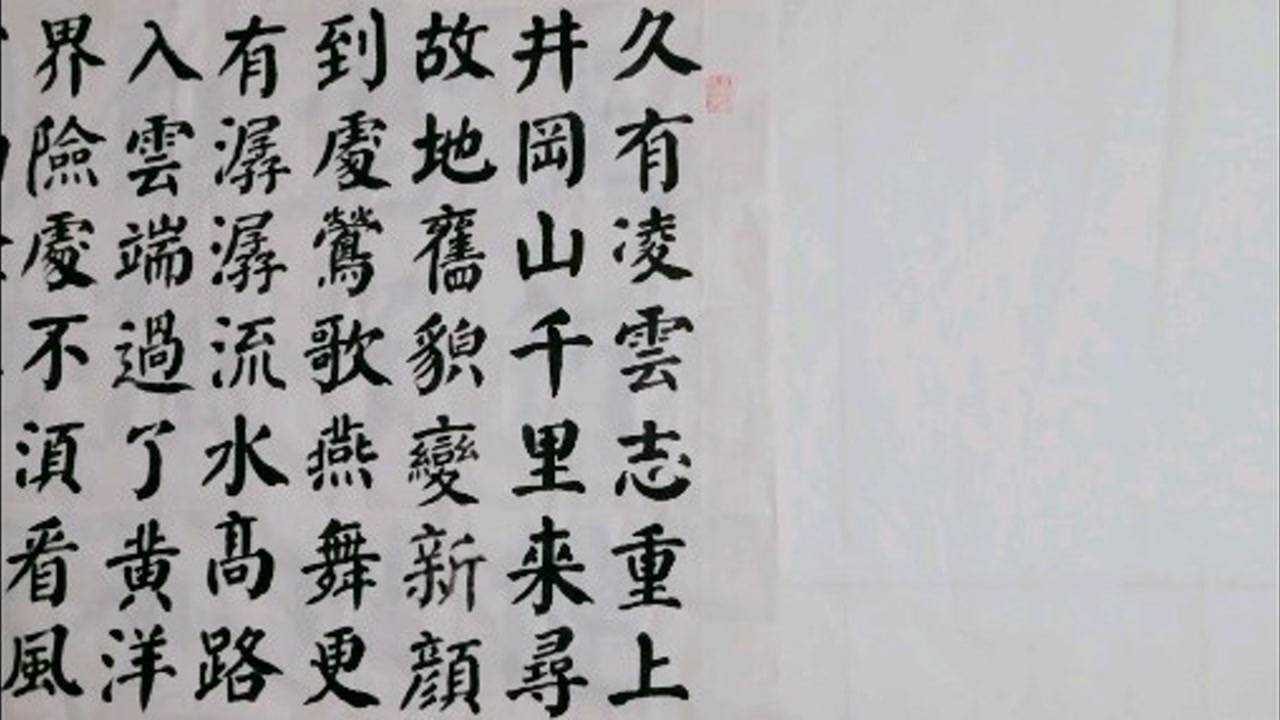 久有凌雲志重上
井岡山千里来尋
故地舊貌變新顔
到處鶯歌燕舞更
有潺潺流水髙路
入雲端過了黄洋
界險處不湏看風